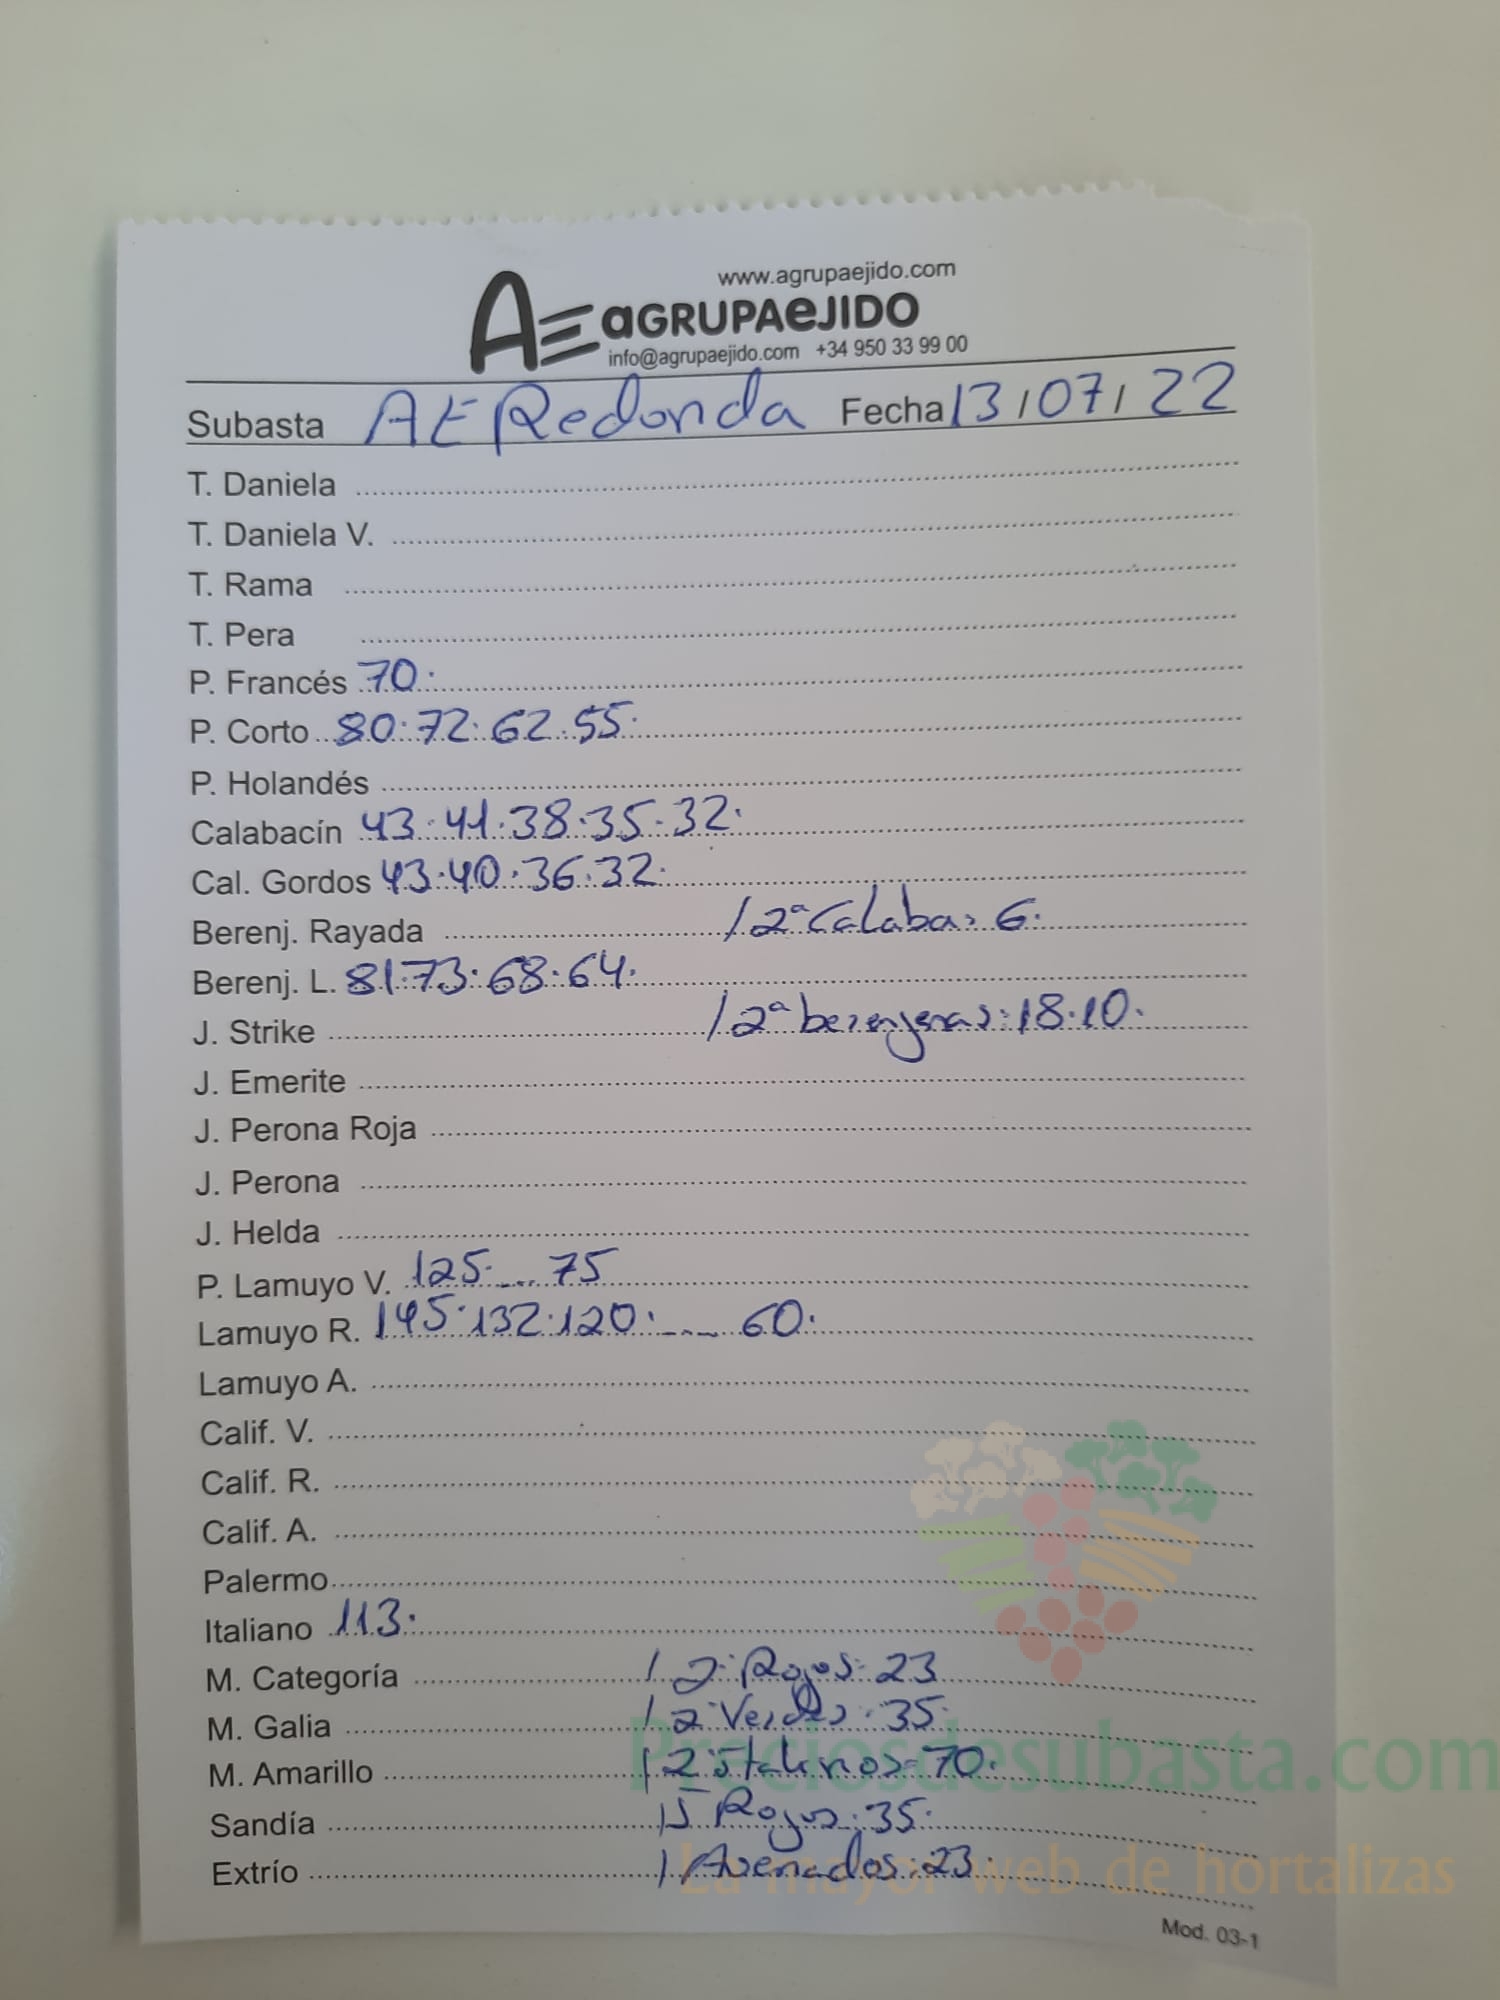 www.agrupaejido.com
AE aGRUPAeJIDO
info@agrupaejido.com +34 950 33 99 00
Subasta AE Redonda Fecha 13/07/22
T. Daniela
T. Daniela V.
T. Rama
T. Pera
P. Francés 70.
P. Corto 80.72.62.55.
P. Holandés
Calabacín 43.41.38.35.32.
Cal. Gordos 43.40.36.32.
Berenj. Rayada / 2ª Calaba: 6.
Berenj. L. 81.73.68.64.
J. Strike / 2ª berenjenas: 18.10.
J. Emerite
J. Perona Roja
J. Perona
J. Helda
P. Lamuyo V. 125. ... 75
Lamuyo R. 145.132.120. ... 60.
Lamuyo A.
Calif. V.
Calif. R.
Calif. A.
Palermo
Italiano 113.
M. Categoría / 2ª Rojos: 23
M. Galia / 2ª Verdes: 35.
M. Amarillo / 2ª Italinos: 70.
Sandía / Rojos: 35.
Extrío / Avenados: 23.
Preciosdesubasta.com
La mayor web de hortalizas
Mod. 03-1